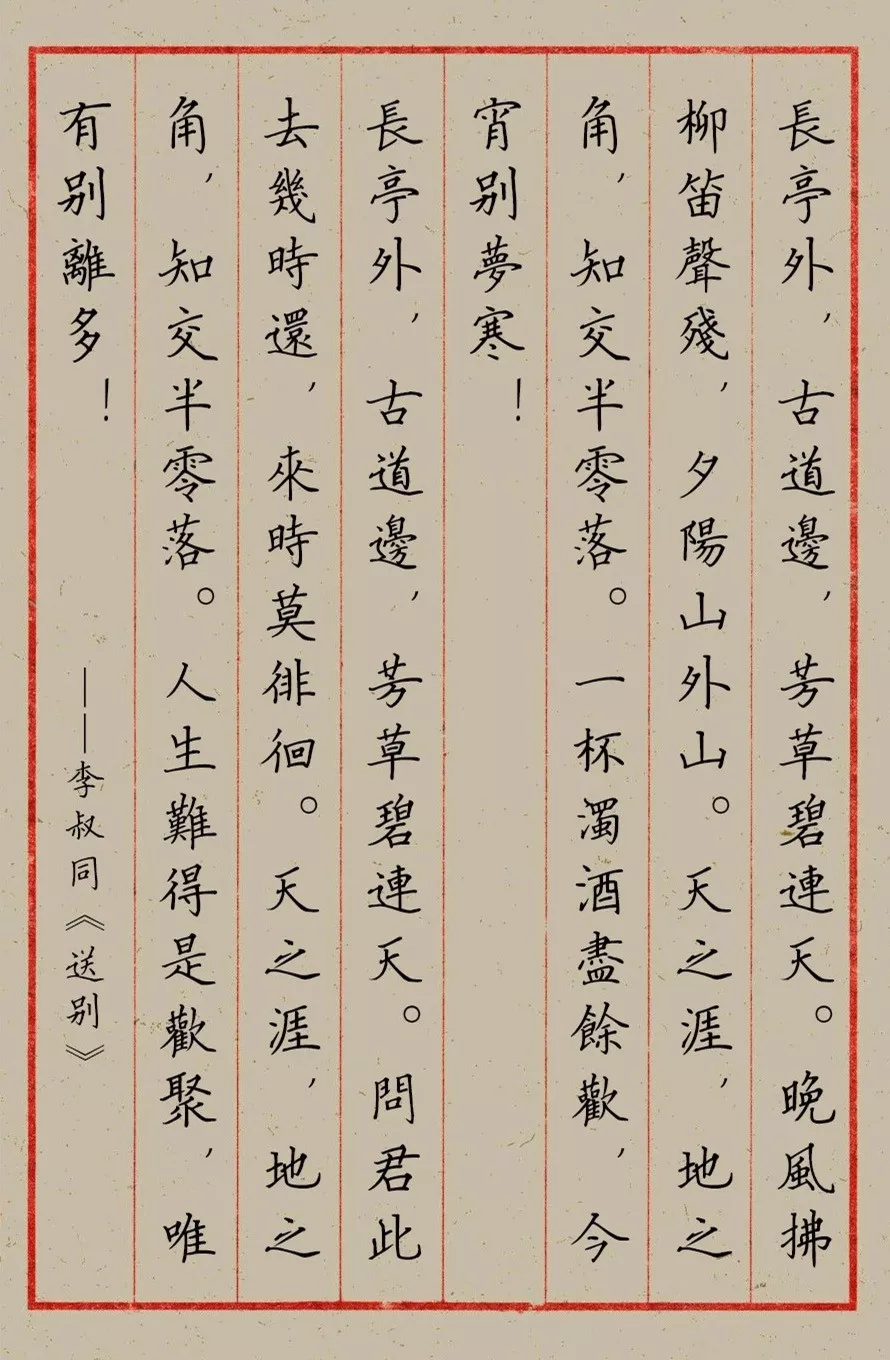 長亭外，古道邊，芳草碧連天。晚風拂
柳笛聲殘，夕陽山外山。天之涯，地之
角，知交半零落。一杯濁酒盡餘歡，今
宵别夢寒！
長亭外，古道邊，芳草碧連天。問君此
去幾時還，來時莫徘徊。天之涯，地之
角，知交半零落。人生難得是歡聚，唯
有别離多！
——李叔同《送别》